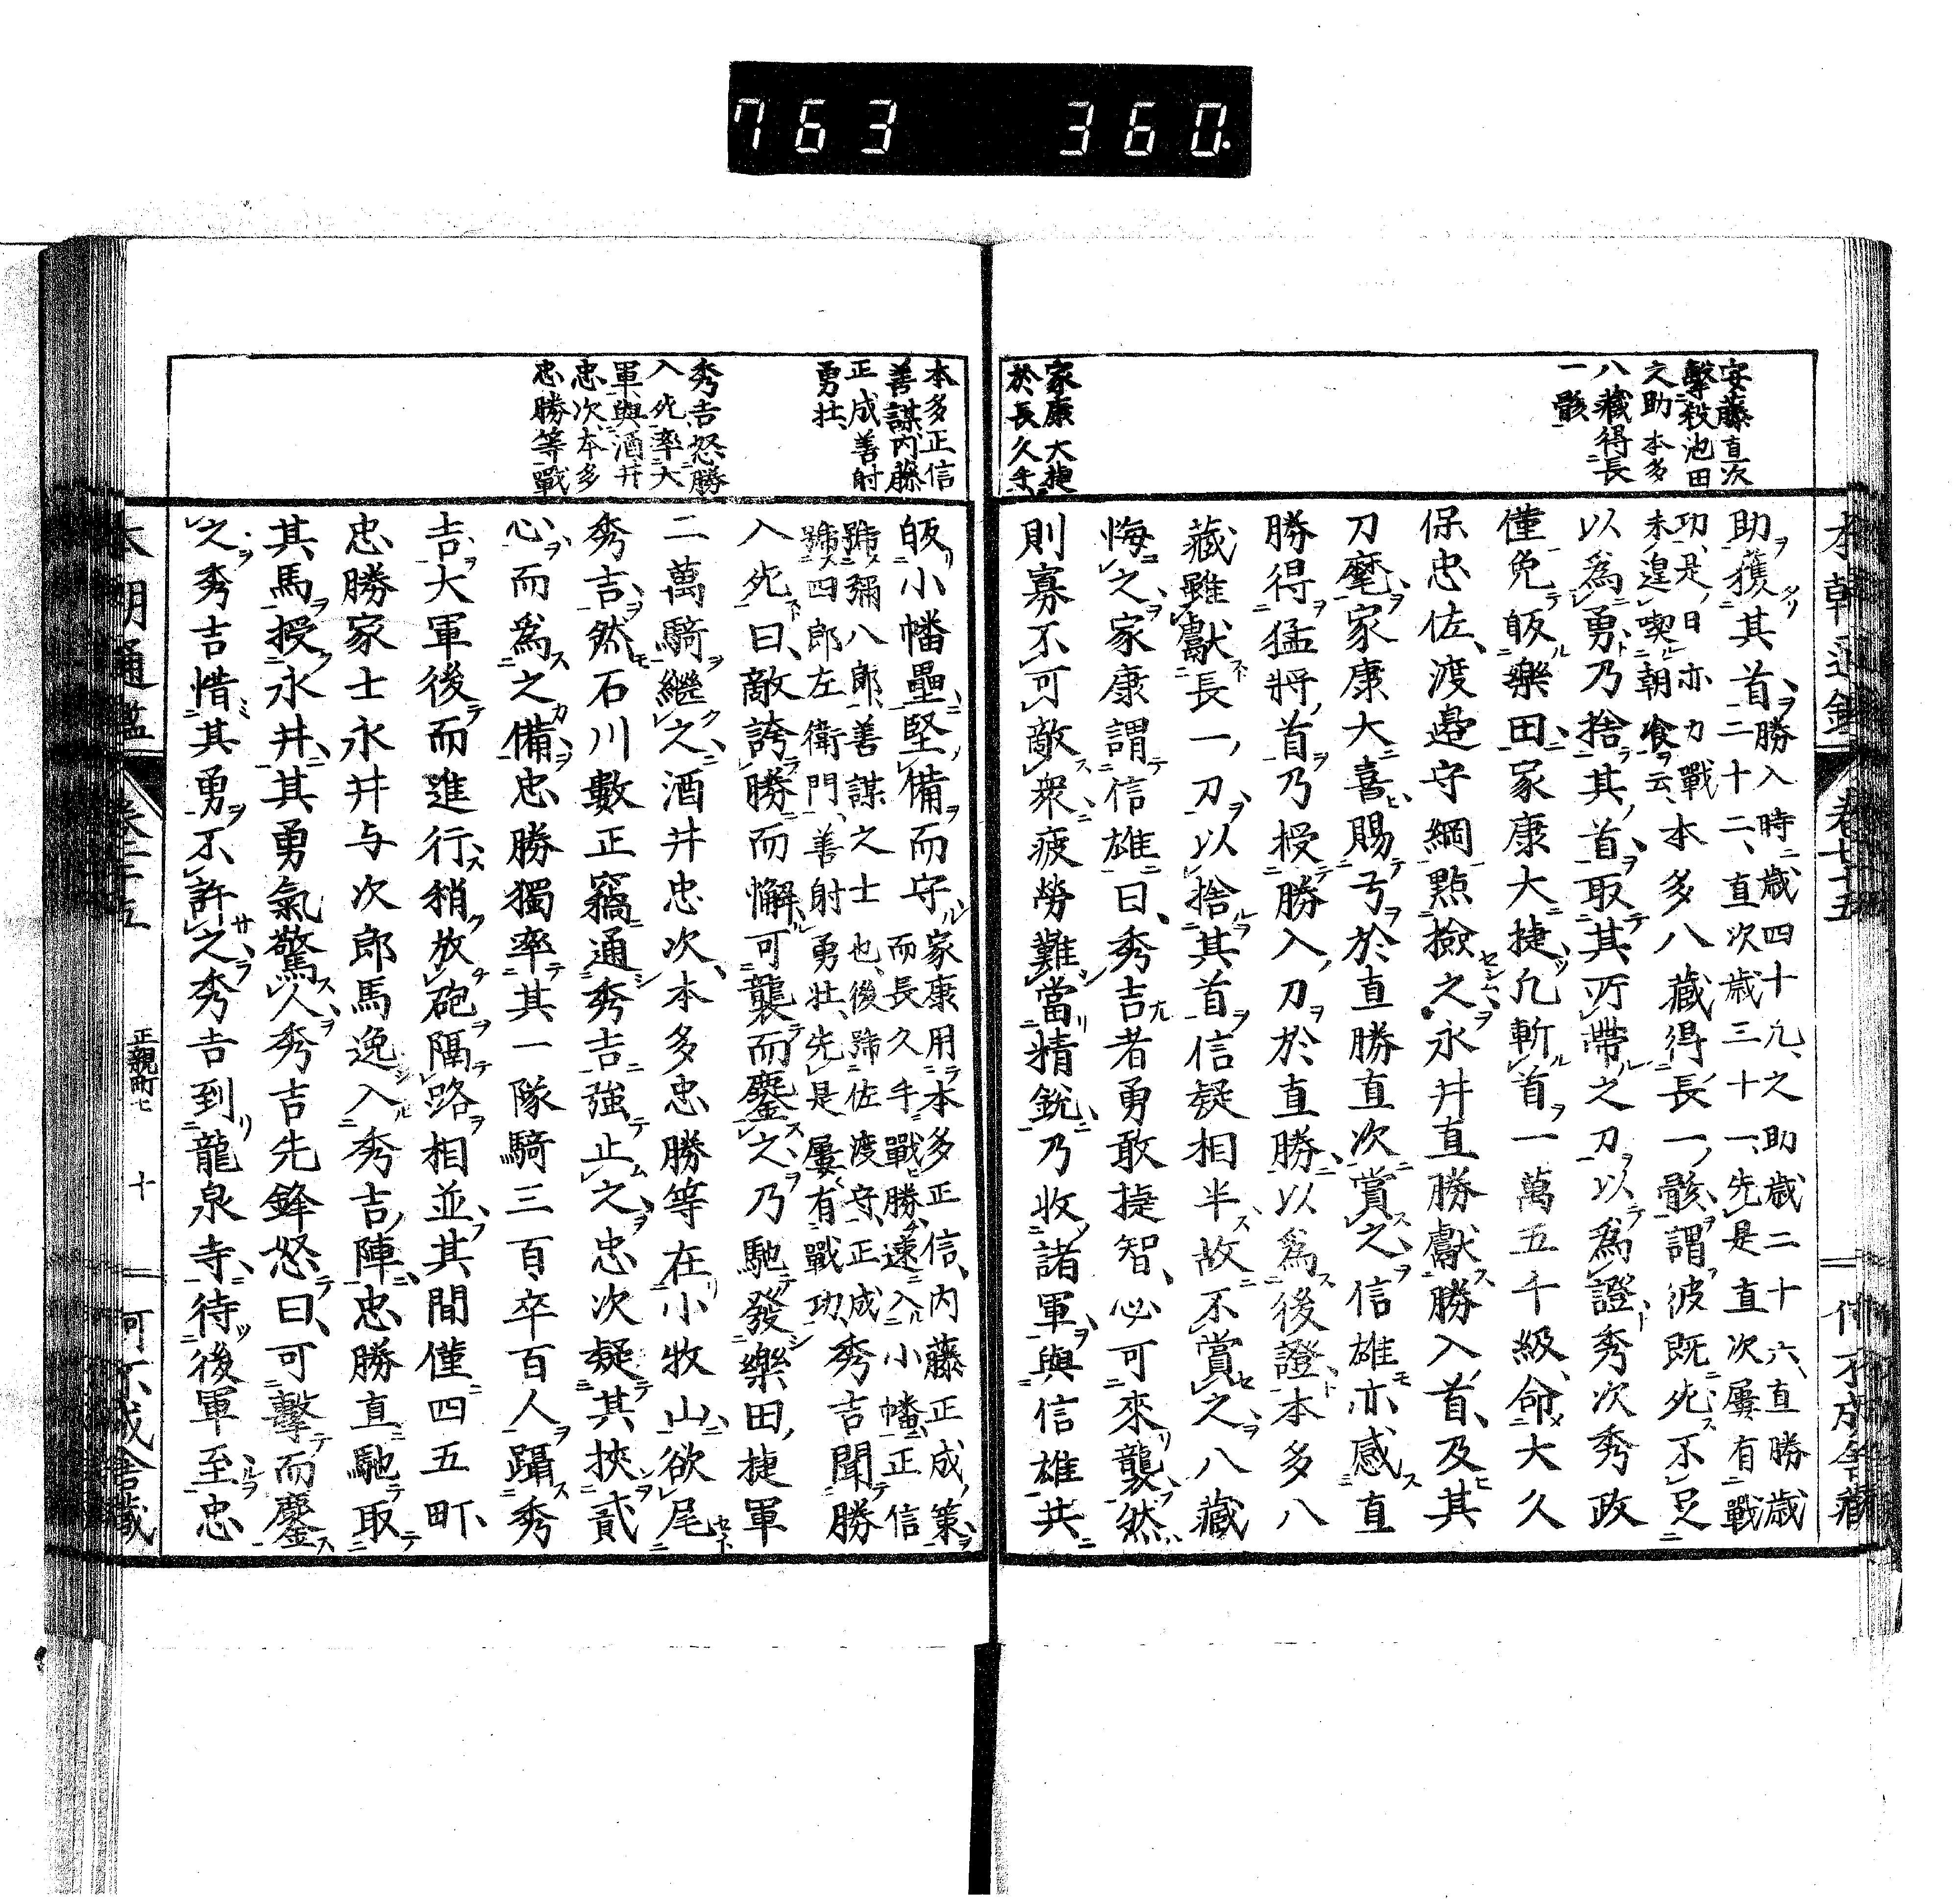 763 360
安藤直次
擊殺池田
之助本多
八藏得長
一骸
家康大捷
於長久手
助獲其首勝入時歲四十九之助歲二十六直勝歲
二十二直次歲三十一先是直次屢有戰
功是日亦力戰
未遑喫朝飡云本多八藏得長一骸謂波既死不足
以爲勇乃捨其首取其所帶之刀以爲證秀次秀政
僅免皈樂田家康大捷凡斬首一萬五千級命大久
保忠佐渡邉守綱點撿之永井直勝獻勝入首及其
刀麾家康大喜賜弓於直勝直次賞之信雄亦感直
勝得猛將首乃授勝入刀於直勝以爲後證本多八
藏雖獻長一刀以捨其首信疑相半故不賞之八藏
悔之家康謂信雄曰秀吉者勇敢捷智必可來襲然
則寡不可敵衆疲勞難當精銳乃收諸軍與信雄共
本多正信
善謀内藤
正成善射
勇壯
秀吉怒勝
入死率大
軍與酒井
忠次本多
忠勝等戰
皈小幡壘堅備而守家康用本多正信内藤正成策
而長久手戰勝速入小幡正信
號彌八郎善謀之士也後號佐渡守正成
號四郎左衛門善射勇壯先是屢有戰功秀吉聞勝
入死曰敵誇勝而懈可襲而鏖之乃馳發樂田捷軍
二萬騎繼之酒井忠次本多忠勝等在小牧山欲尾
秀吉然石川數正竊通秀吉強止之忠次疑其挾貳
心而爲之備忠勝獨率其一隊騎三百卒百人躡秀
吉大軍後而進行稍放砲隔路相並其間僅四五町
忠勝家士永井与次郎馬逸入秀吉陣忠勝直馳取
其馬授永井其勇氣驚人秀吉先鋒怒曰可擊而鏖
之秀吉惜其勇不許之秀吉到龍泉寺待後軍至忠
正親町七 十